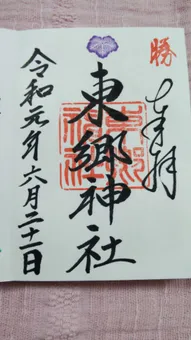 勝
奉拝
東郷神社
令和元年六月二十一日